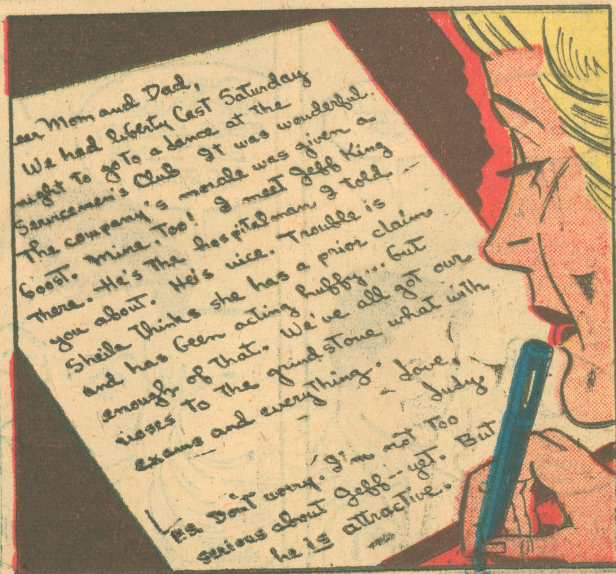 ear Mom and Dad,
We had liberty last Saturday
night to go to a dance at the
Servicemen's Club. It was wonderful.
The company's morale was given a
boost. Mine, too! I meet Jeff King
there. He's the hospitalman I told
you about. He's nice. Trouble is
Sheila thinks she has a prior claim
and has been acting huffy... but
enough of that. We've all got our
noses to the grindstone what with
exams and everything.
- Love,
Judy
P.S. Don't worry. I'm not too
serious about Jeff -- yet. But
he is attractive.